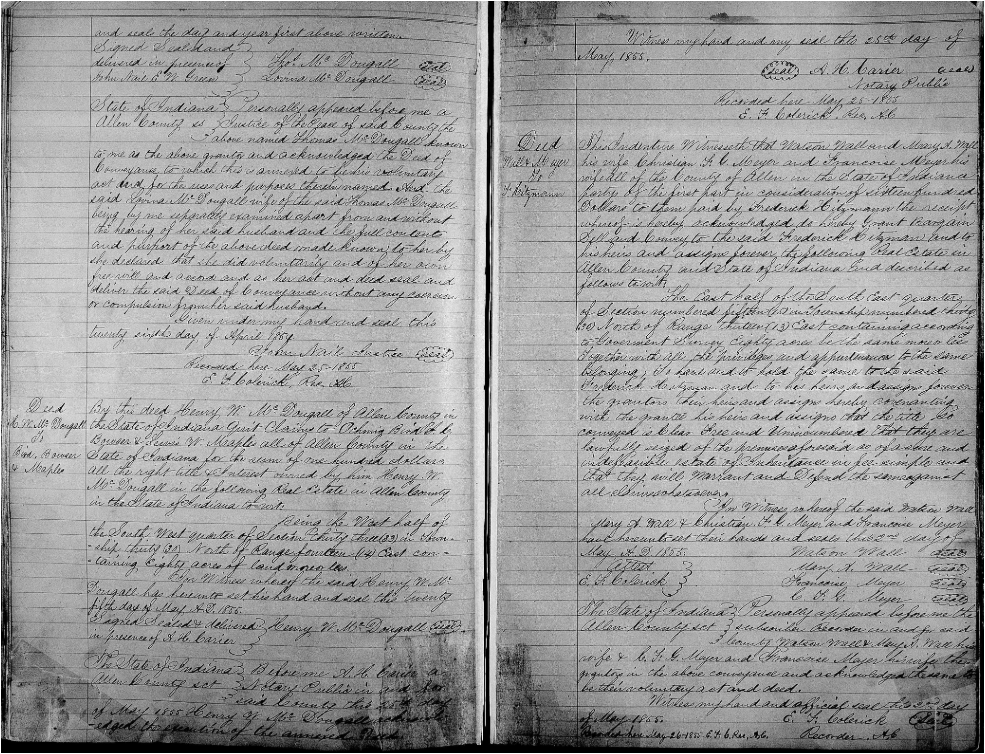 and seals the day and year first above written
Signed Sealed and
delivered in presence of Tho. Mc Dougall Seal
John Nail E. W. Green Lovina Mc Dougall Seal
State of Indiana Personally appeared before me a
Allen County ss Justice of the Peace of said County the
above named Thomas McDougall known
to me as the above grantor and acknowledged the Deed of
Conveyance to which this is annexed to be his voluntary
act and for the uses and purposes therein named And the
said Lovina McDougall wife of the said Thomas McDougall
being by me separately examined apart from and without
the hearing of her said husband and the full contents
and purport of the above deed made known to her by
she declared that she did voluntarily and of her own
free will and accord and as her act and deed seal and
deliver the said Deed of Conveyance without any coersion
or compulsion from her said husband.
Given under my hand and seal this
twenty sixth day of April 1854
John Nail Justice Seal
Recorded here May 25-1855
E F Colerick, Rec, A.C.
Deed
H. W. McDougall
to
Bird, Bowser
& Maples
By this deed Henry W. McDougall of Allen County in
the State of Indiana Quit Claims to Ochmig Bird
Bowser & Lewis W. Maples all of Allen County in the
State of Indiana for the sum of one hundred dollars
all the right title & Interest owned by him Henry W.
McDougall in the following Real Estate in Allen County
in the State of Indiana to wit:
Being the West half of
the South West quarter of Section thirty three (33) in Town-
ship thirty (30) North of Range fourteen (14) East con-
taining Eighty acres of land more or less.
In Witness whereof the said Henry W. Mc
Dougall has hereunto set his hand and seal this twenty
fifth day of May A.D. 1855.
Signed Sealed & delivered Henry W. McDougall Seal
in presence of A. H. Carier
The State of Indiana Before me A. H. Carier a
Allen County sct Notary Public in and for
said County this 25th day
of May 1855 Henry W. McDougall acknowl-
edged the execution of the annexed Deed.
Witness my hand and my seal this 25th day of
May, 1855.
Seal A. H. Carier Seal
Notary Public
Recorded here May 25-1855
E. F. Colerick, Rec, A.C.
Deed
Wall & Meyer
to
F. Hitzmann
This Indenture Witnesseth that Watson Wall and Mary A. Wall
his wife Christian F. G. Meyer and Francoise Meyer his
wife all of the County of Allen in the State of Indiana
party of the first part in consideration of sixteen hundred
Dollars to them paid by Frederick Hitzmann the receipt
whereof is hereby acknowledged do hereby Grant Bargain
Sell and Convey to the said Frederick Hitzman and to
his heirs and assigns forever the following Real Estate in
Allen County and State of Indiana and described as
follows to wit,
The East half of the South East quarter
of Section numbered fifteen in township numbered thirty
(30) North of Range thirteen (13) East containing according
to Goverment Survey Eighty acres be the same more or less
Together with all the privileges and appurtenances to the same
belonging, To have and to hold the same to the said
Frederick Hitzman and to his heirs and assigns forever
the grantors their heirs and assigns hereby covenanting
with the grantee his heirs and assigns that the title so
conveyed is Clear Free and Unincumbered That they are
lawfully seized of the premises aforesaid as of a sure and
indefeasible estate of Inheritance in fee simple and
that they will Warrant and Defend the same against
all claims whatsoever.
In Witness whereof the said Watson Wall
Mary A Wall & Christian F. G. Meyer and Francoise Meyer
have hereunto set their hands and seals this 22d day of
May A.D. 1855. Watson Wall Seal
Attest Mary A. Wall Seal
E. F. Colerick Francoise Meyer Seal
C. F. G. Meyer Seal
The State of Indiana Personally appeared before me the
Allen County sct subscriber Recorder in and for said
County Watson Wall & Mary A. Wall his
wife & C. F. G. Meyer and Francoise Meyer his wife the
grantors in the above conveyance and acknowledged the same to
be their voluntary act and deed.
Witness my hand and official seal this 22d day
of May 1855. E. F. Colerick Seal
Recorded here May 26-1855 E. F. C. Rec, A.C. Recorder, A.C.